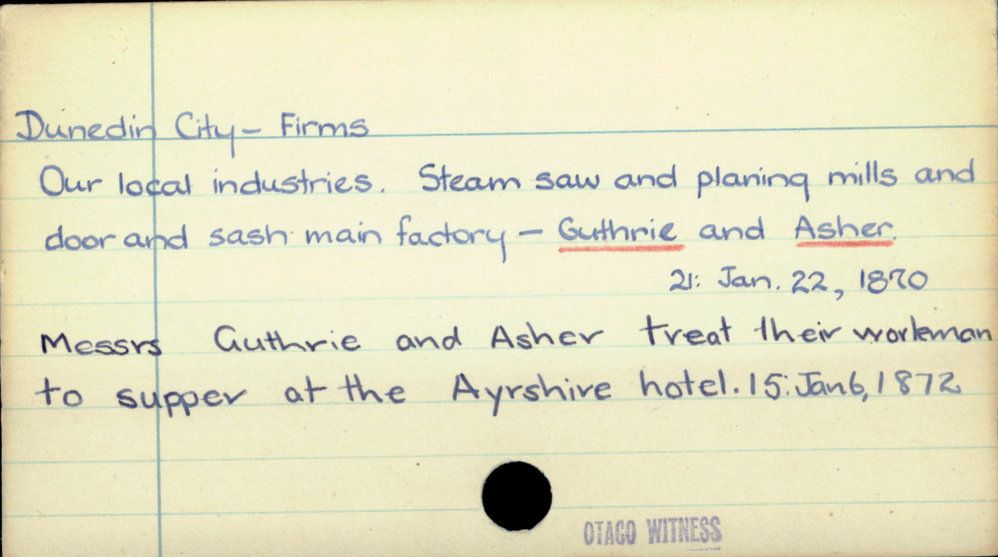 Dunedin City - Firms
Our local industries. Steam saw and planing mills and
door and sash main factory - Guthrie and Asher.
21: Jan. 22, 1870
Messrs Guthrie and Asher treat their workman
to supper at the Ayrshire hotel. 15: Jan 6, 1872
OTAGO WITNESS